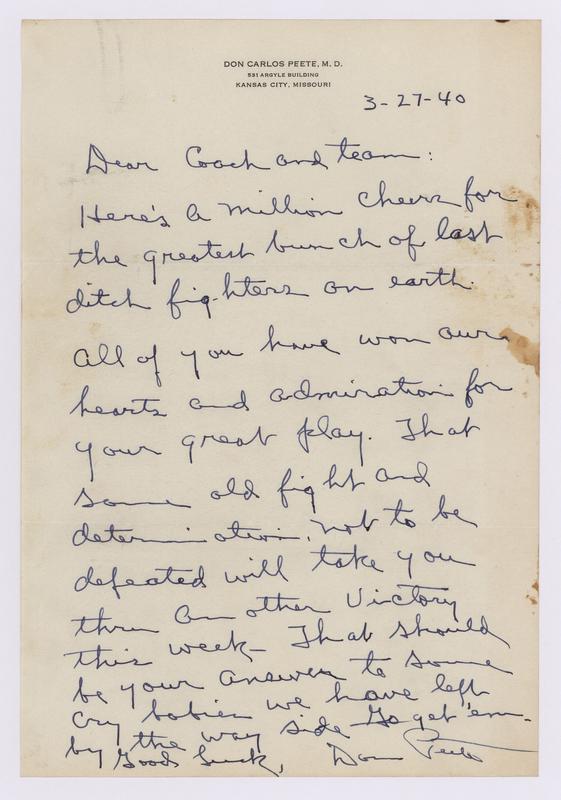 DON CARLOS PEETE, M. D.
531 ARGYLE BUILDING
KANSAS CITY, MISSOURI
3-27-40
Dear Coach and team:
Here's a million cheers for
the greatest bunch of last
ditch fighters on earth.
All of you have won our
hearts and admiration for
your great play. That
same old fight and
determination, not to be
defeated will take you
thru another Victory
this week - That should
be your answer to some
cry babies we have left
by the way side Go get 'em -
Good luck, Don Peete